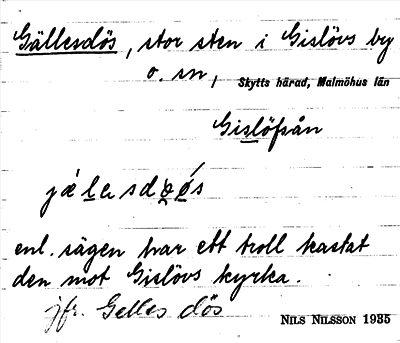 Gällesdös, stor sten i Gislövs by
o. sn,
Skytts härad, Malmöhus län
Gislöfsån
enl. sägen har ett troll kastat
den mot Gislövs kyrka.
jfr. Gelles dös
NILS NILSSON 1935